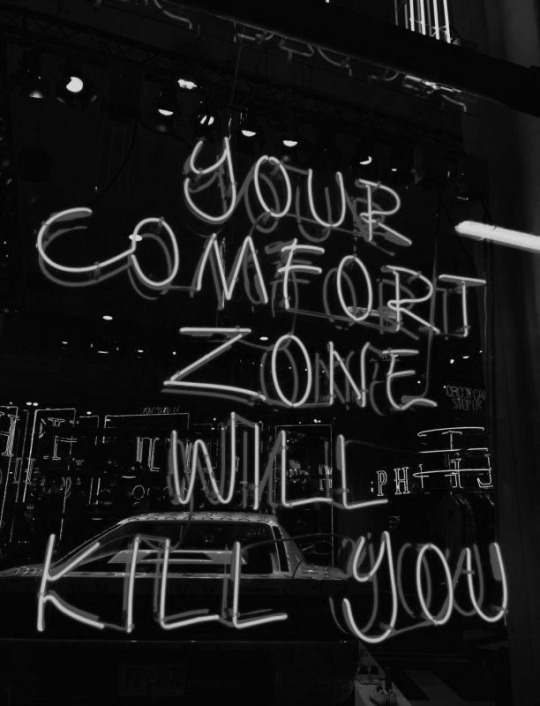 YOUR
COMFORT
ZONE
WILL
KILL YOU